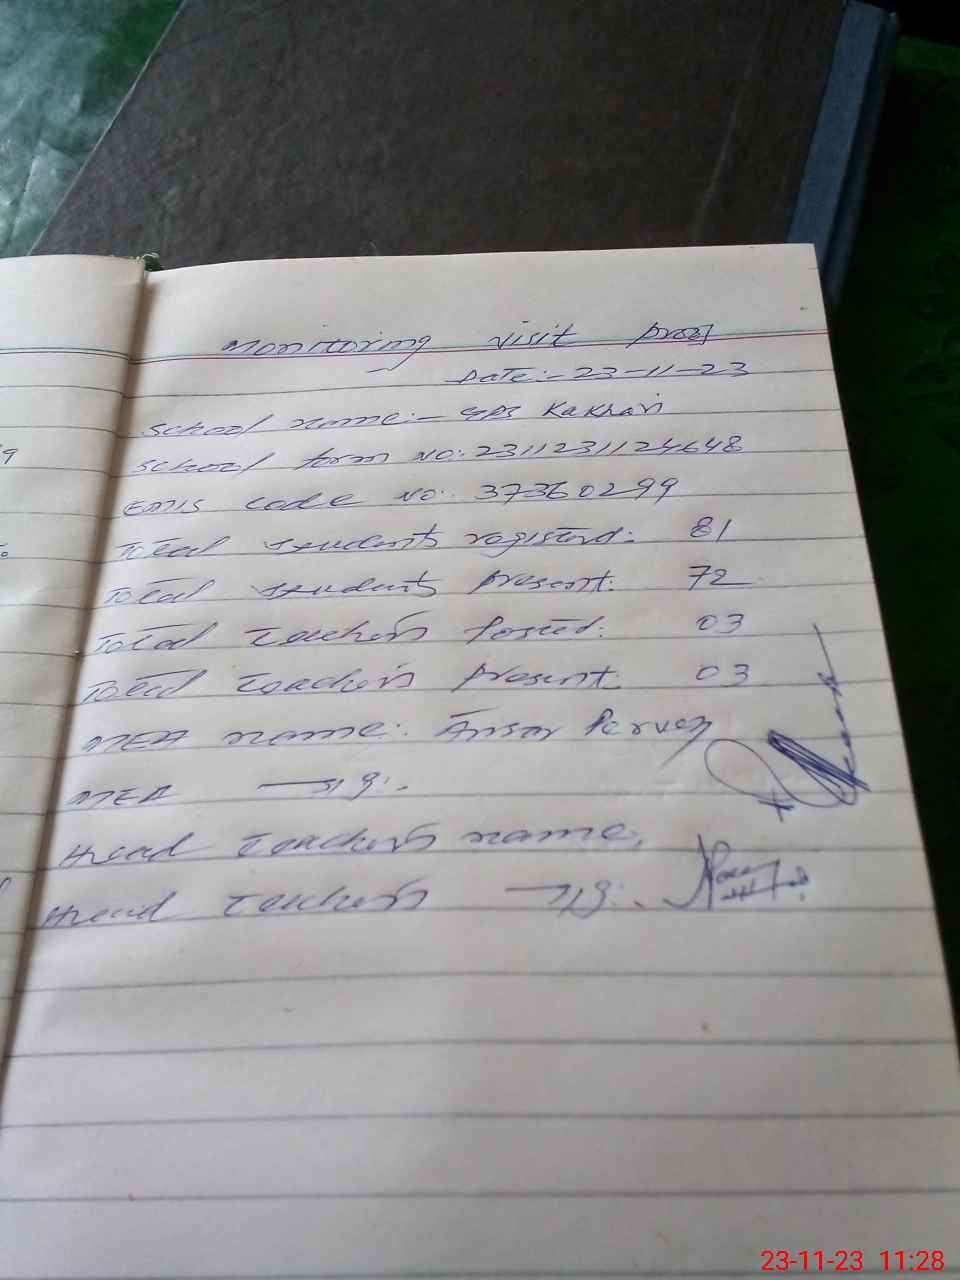 Monitoring visit proof
Date:- 23-11-23
School name:- GPS Kakhan
School form No: 2311231124648
EMIS code No: 37360299
Total students registerd: 81
Total students present: 72
Total teachers Posted: 03
Total teachers present: 03
MEA name: Ansar Parveen
MEA sig:
Head teachers name:
Head teachers sig:
23-11-23 11:28